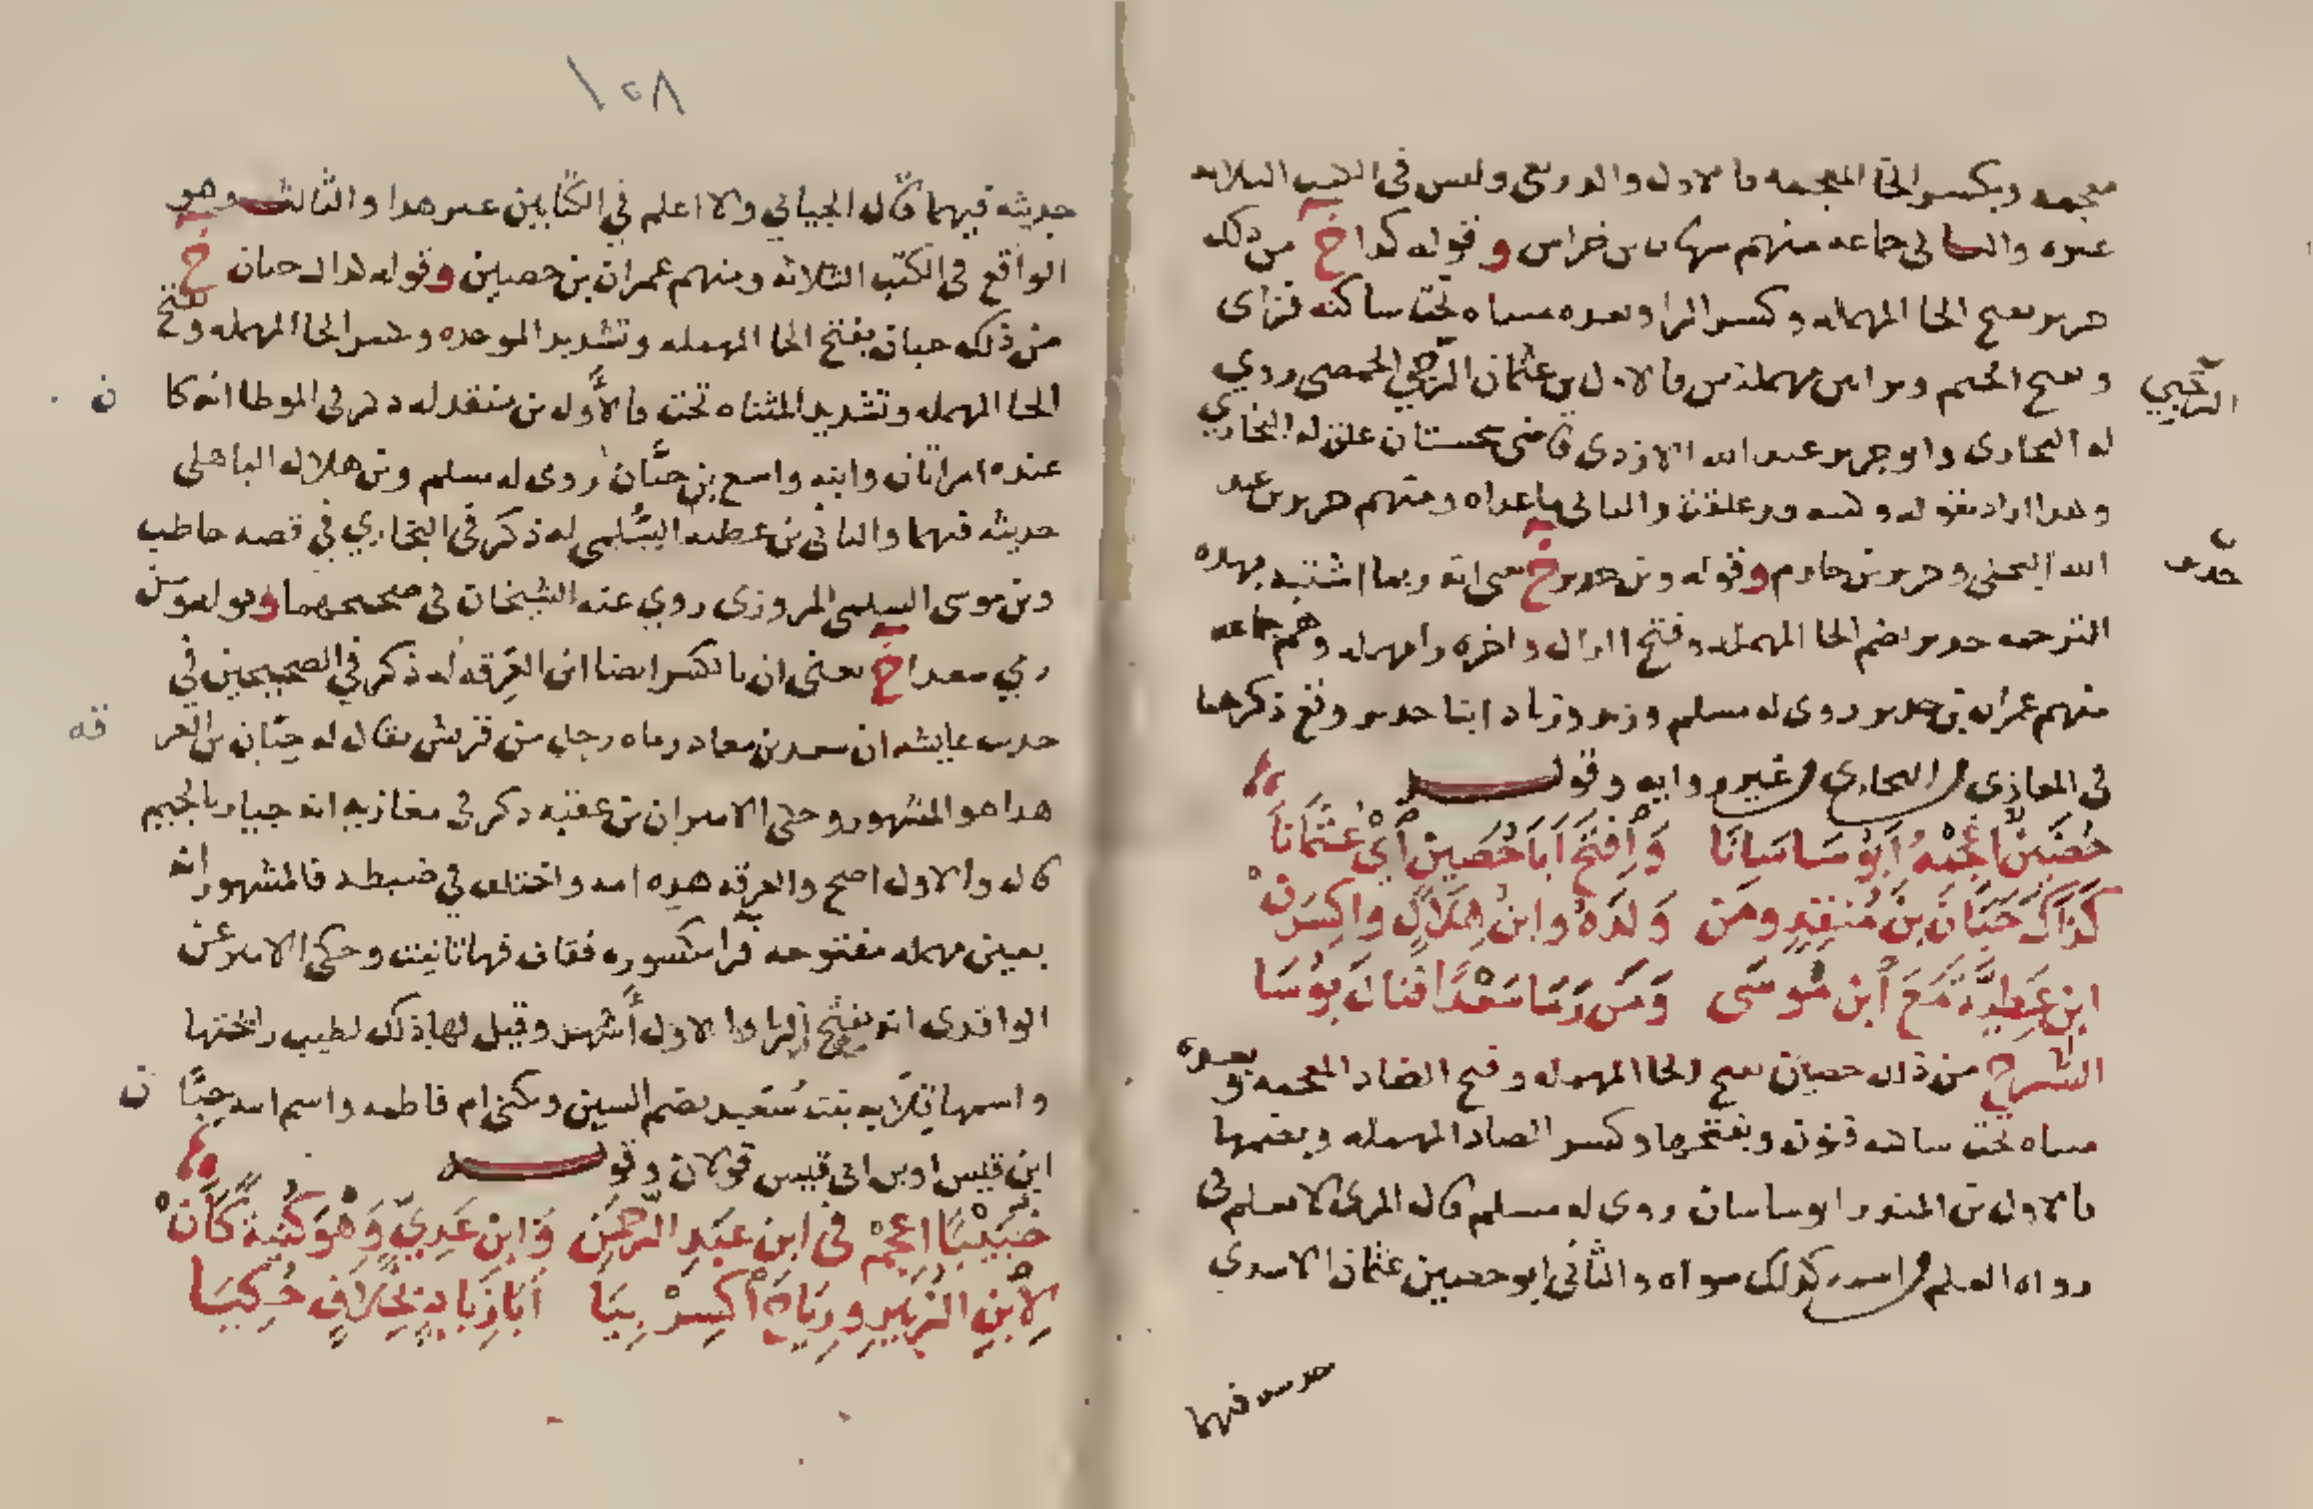 معجمه وبكسر الخا المعجمه فالاول والد ربعي وليس في الكتب الثلاثه
غيره والثاني جماعه منهم شهاب بن خراش وقوله كذا خ من ذلك
حريز بفتح الحا المهمله وكسر الرا وبعده مساه تحت ساكنه فزاى
وبفتح الجيم وبراين مهملتين فالاول بن عثمان الرحبي الحمصي روي
الرحبي
له البحارى وابو حريز عبد الله الازدى قاضى سجستان علق له البخاري
وهدا اراد بقوله وكنيه ورعلقن والثاني ماعداه ومنهم جرير بن عبد
الله البجلى وجرير بن حازم وقوله وبن حدير خ يعنى انه ربما اشتبه بهده
حدير
الترجمه حدير بضم الحا المهمله وفتح الدال واخره را مهمله وهم جماعه
منهم عمران بن حدير روى له مسلم وزيد وزياد ابنا حدير وقع ذكرهما
في المغازى من البخاري من غير روايه وقولـــه
حُضَيْنٌ اعْجِمْهُ اَبُو سَاسَانَا وَافْتَحْ اَبَا حَصِينٍ اَيْ عُثْمَانَا
كَذَاكَ حَبَّانَ بِنَ مُنْقِذٍ ومَن وَلَدَهُ وابنُ هِلَالٍ واكْسِرَنْ
ابنَ عَطِيَّةَ مَعَ ابْن مُوسَى وَمَن رَمَا سَعْدًا فَنَالَ بُوسَا
الشرح من ذلك حضين بضم الحا المهمله وفتح الضاد المعجمه وبعده
مساه تحت ساكنه فنون وبفتحها وكسر الصاد المهمله وبضمها
فالاول بن المنذر ابو ساسان روى له مسلم قال المزى لا نعلم في
رواه العلم من اسمه كذلك سواه والثاني ابو حصين عثمان الاسدي
حديثه فيهما
١٥٨
حديثه فيهما قاله الجياني ولا اعلم في الكتابين غير هدا والثالث وهو
الواقع في الكتب الثلاثه ومنهم عمران بن حصين وقوله كذاك حبان خ
من ذلك حبان بفتح الحا المهمله وتشديد الموحده وكسر الحا المهمله وفتح
الحا المهمله وتشديد المثناه تحت فالأول بن منقذ له ذكر في الموطا انه كا
ن
عنده امراتان وابنه واسع بن حبَّان روى له مسلم وبن هلال الباهلى
حديثه فيهما والثاني بن عطيه السُّلمي له ذكر في البخاري في قصه حاطب
وبن موسى السلمى المروزى روي عنه الشيخان في صحيحهما وقوله ومن
رمي سعدا خ يعنى ان بالكسر ايضا ابن العَرِقه له ذكر في الصحيحين في
حديث عايشه ان سعد بن معاد رماه رجل من قريش يقال له حِبّان بن العر
قه
هدا هو المشهور وحكى الامير ان بن عقبه ذكر في مغازيه انه جبار بالجيم
قال والاول اصح والعرقه هده امه واختلف في ضبطه فالمشهور انه
بعين مهمله مفتوحه فرا مكسوره فقاف فها تانيث وحكى الامير عن
الواقدى انه بفتح الرا والاول أشهر وقيل لها ذلك لطيب رائحتها
واسمها قِلَابه بنت سُعَيد بضم السين وتكنى ام فاطمه واسم ابيه حِبَّا
ن
ابن قيس او بن ابي قيس قولان وقولـــه
خُبَيْبًا اعْجِمْ في ابنِ عَبْدِ الرّحْمَنِ وَابنِ عَدِيٍّ وَهْوَ كُنْيَةً كَانْ
لِابْنِ الزُّبَيْرِ ورِيَاحَ اكْسِرْ بِيَا اَبَا زِيَادٍ بِخِلَافٍ حُكِيَا